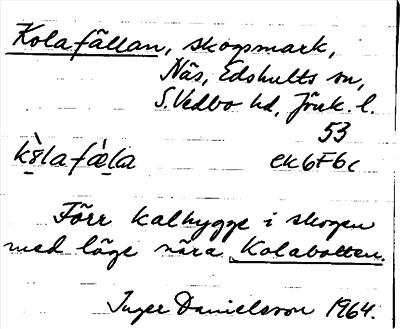 Kolafällan, skogsmark,
Näs, Edshults sn,
S. Vedbo hd, Jönk. l.
53
kò̤lafæ̀la ek 6F6c
Förr kalhygge i skogen
med läge nära Kolabotten.
Inger Danielsson 1964.